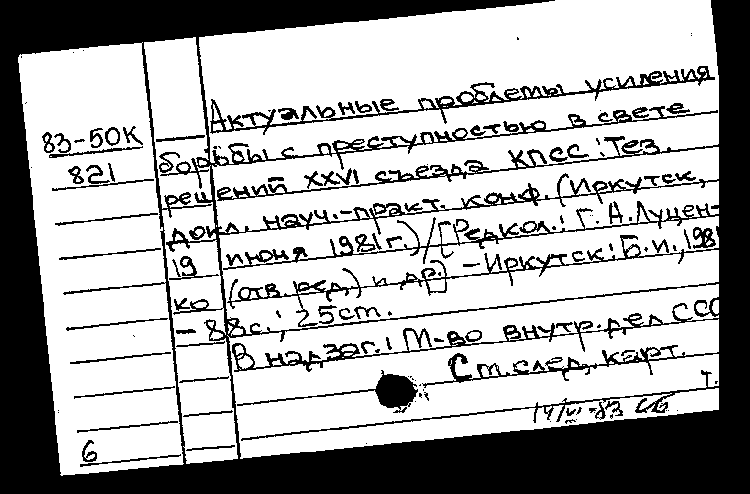 Актуальные проблемы усиления
83-50К
821
борьбы с преступностью в свете
решений XXVI съезда КПСС: Тез.
докл. науч.-практ. конф. (Иркутск,
19 июня 1981 г.) / [Редкол.: Г. А. Луцен-
ко (отв. ред.) и др.] - Иркутск: Б. и., 1981
- 88 с.; 25 cm.
В надзаг.: М-во внутр. дел ССС
См. след. карт.
т.
14/VI-83
6